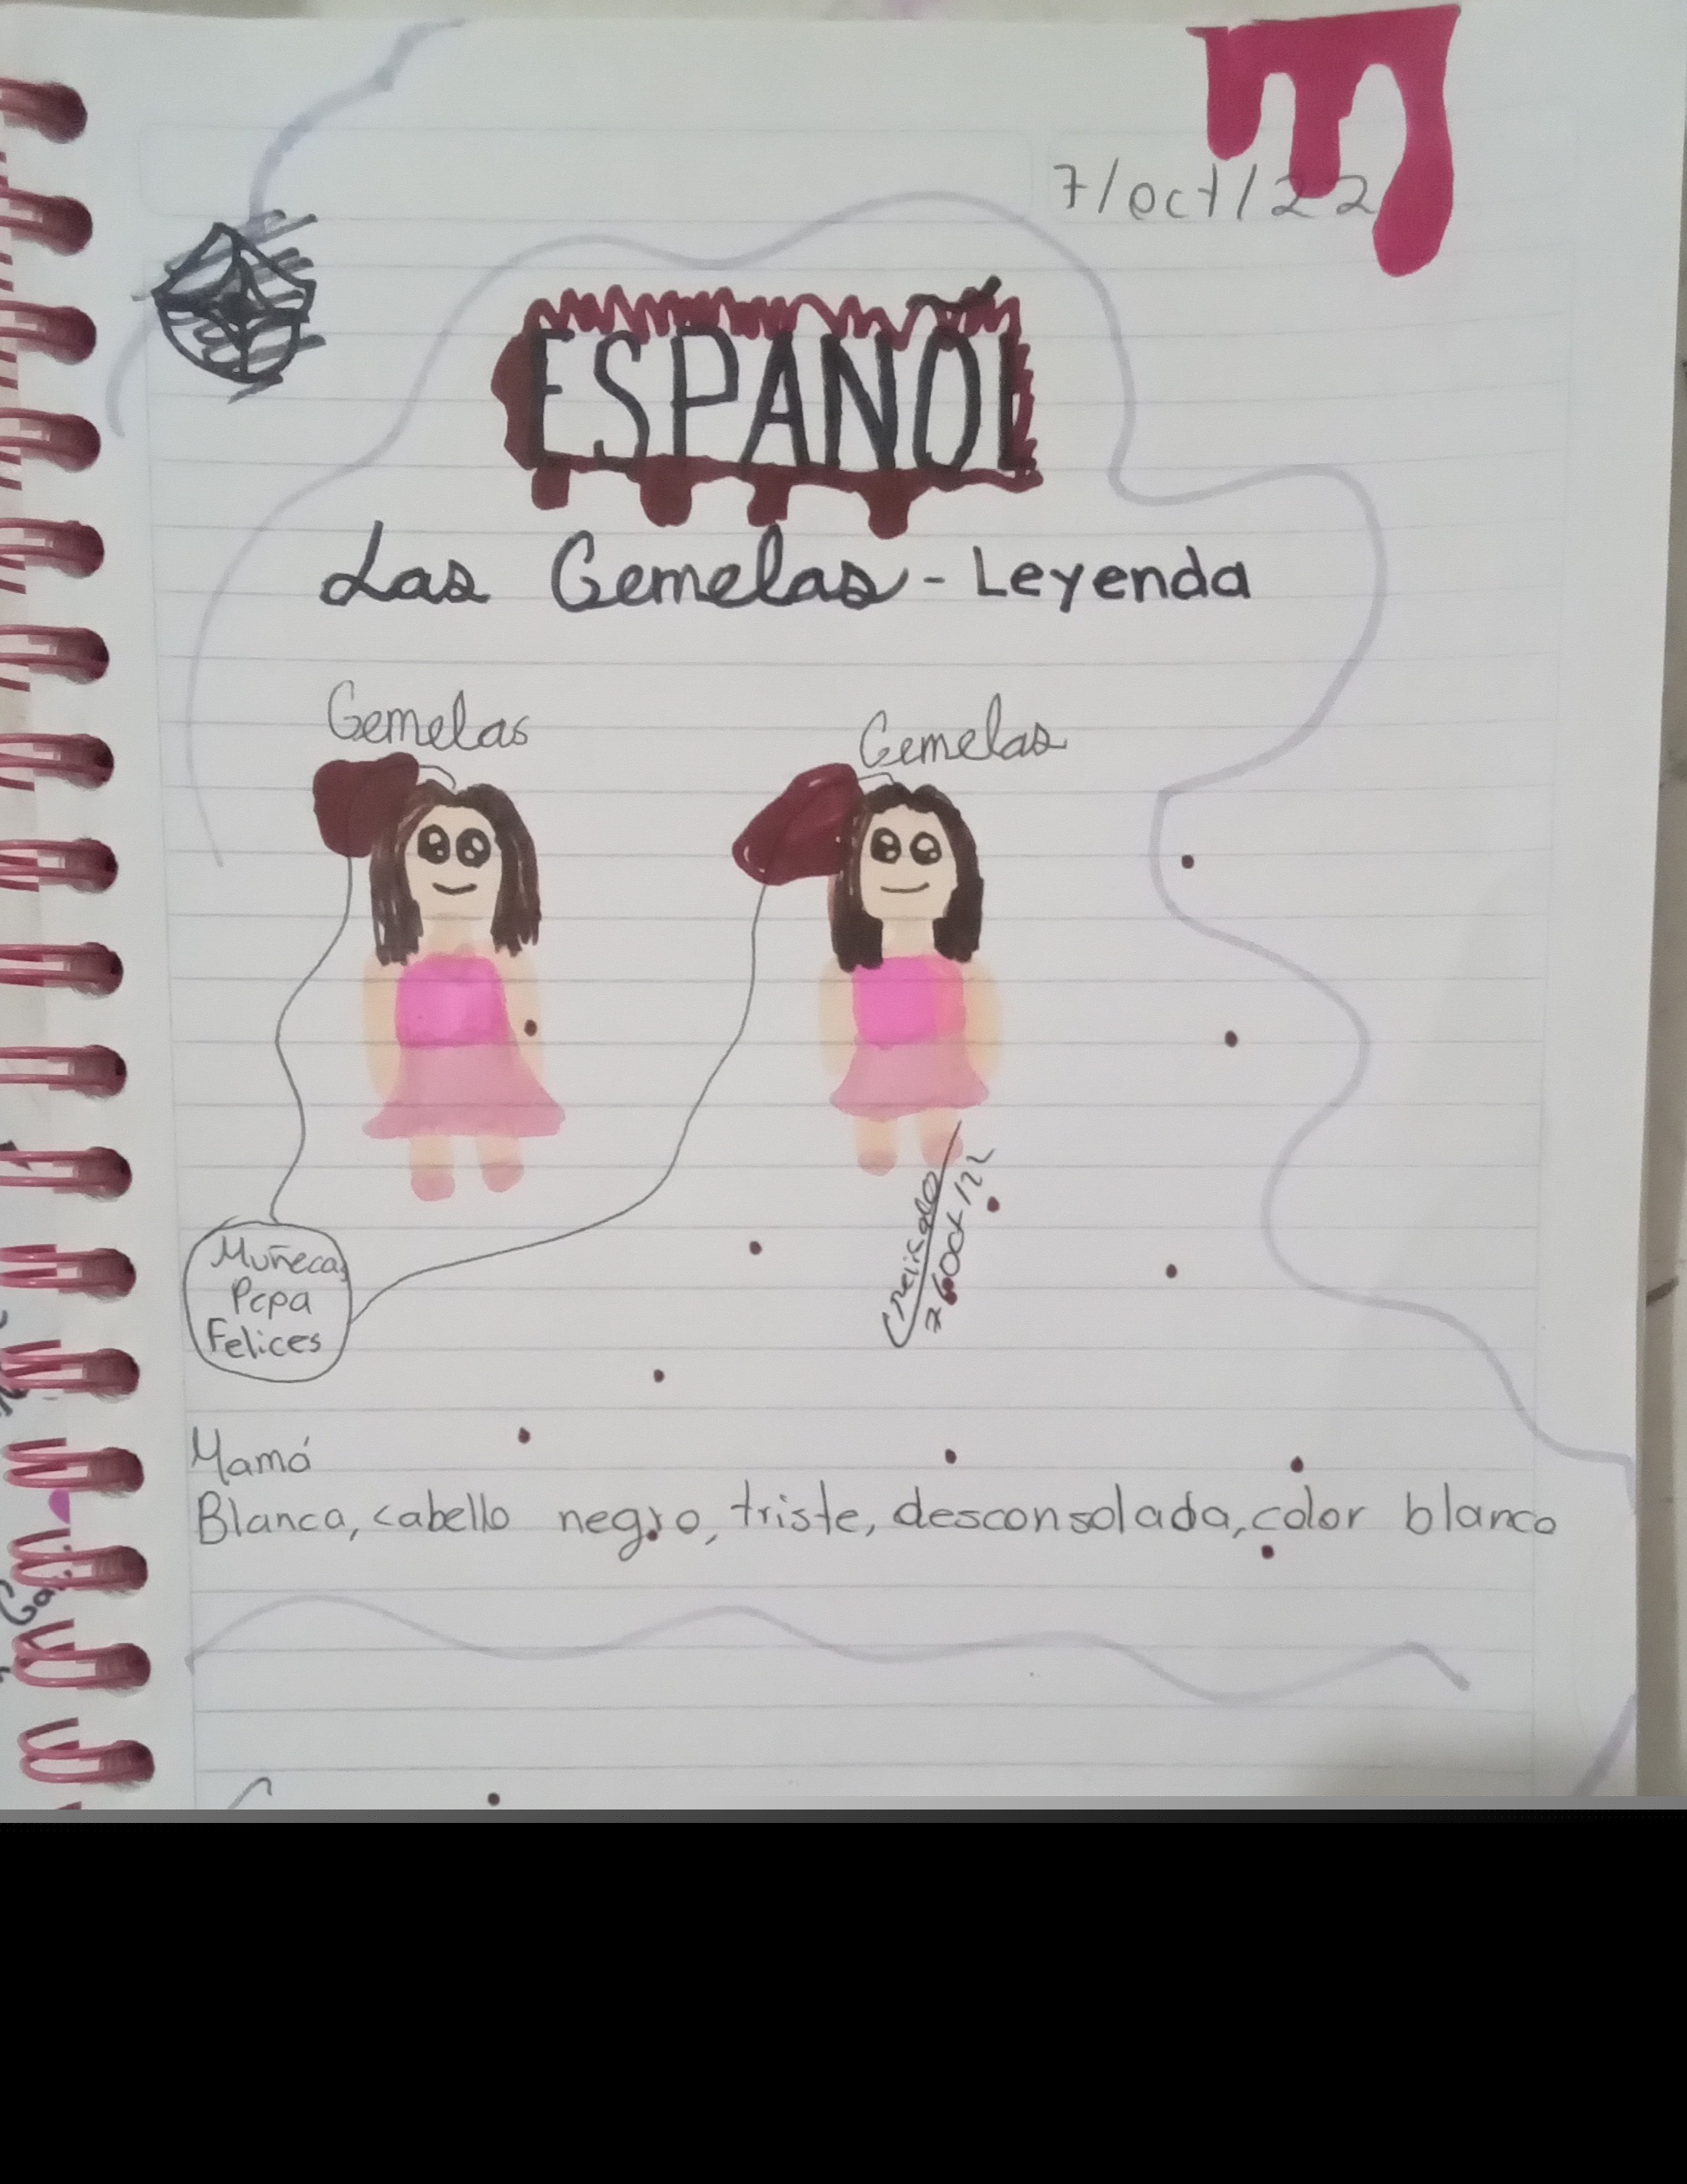 7/oct/22
ESPAÑOL
Las Gemelas - Leyenda
Gemelas
Gemelas
Muñecas
Popa
Felices
7 Oct 22
Mamá
Blanca, cabello negro, triste, desconsolada, color blanco